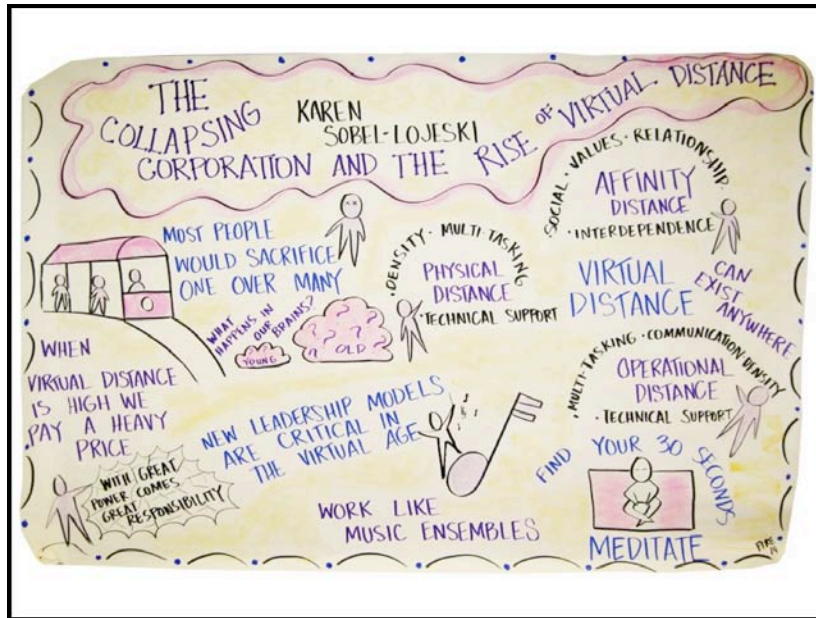 THE
COLLAPSING
CORPORATION AND THE RISE OF VIRTUAL DISTANCE
KAREN
SOBEL-LOJESKI
MOST PEOPLE
WOULD SACRIFICE
ONE OVER MANY
WHAT
HAPPENS IN
OUR
BRAINS?
YOUNG
? ? ? ? ? ? ?
OLD
·DENSITY·MULTI-TASKING
PHYSICAL
DISTANCE
·TECHNICAL SUPPORT
·SOCIAL·VALUES·RELATIONSHIP
AFFINITY
DISTANCE
·INTERDEPENDENCE
VIRTUAL
DISTANCE
CAN
EXIST
ANYWHERE
·MULTI-TASKING·COMMUNICATION·DENSITY
OPERATIONAL
DISTANCE
·TECHNICAL SUPPORT
WHEN
VIRTUAL DISTANCE
IS HIGH WE
PAY A HEAVY
PRICE
WITH GREAT
POWER COMES
GREAT
RESPONSIBILITY
NEW LEADERSHIP MODELS
ARE CRITICAL IN
THE VIRTUAL AGE
WORK LIKE
MUSIC ENSEMBLES
FIND YOUR 30 SECONDS
MEDITATE